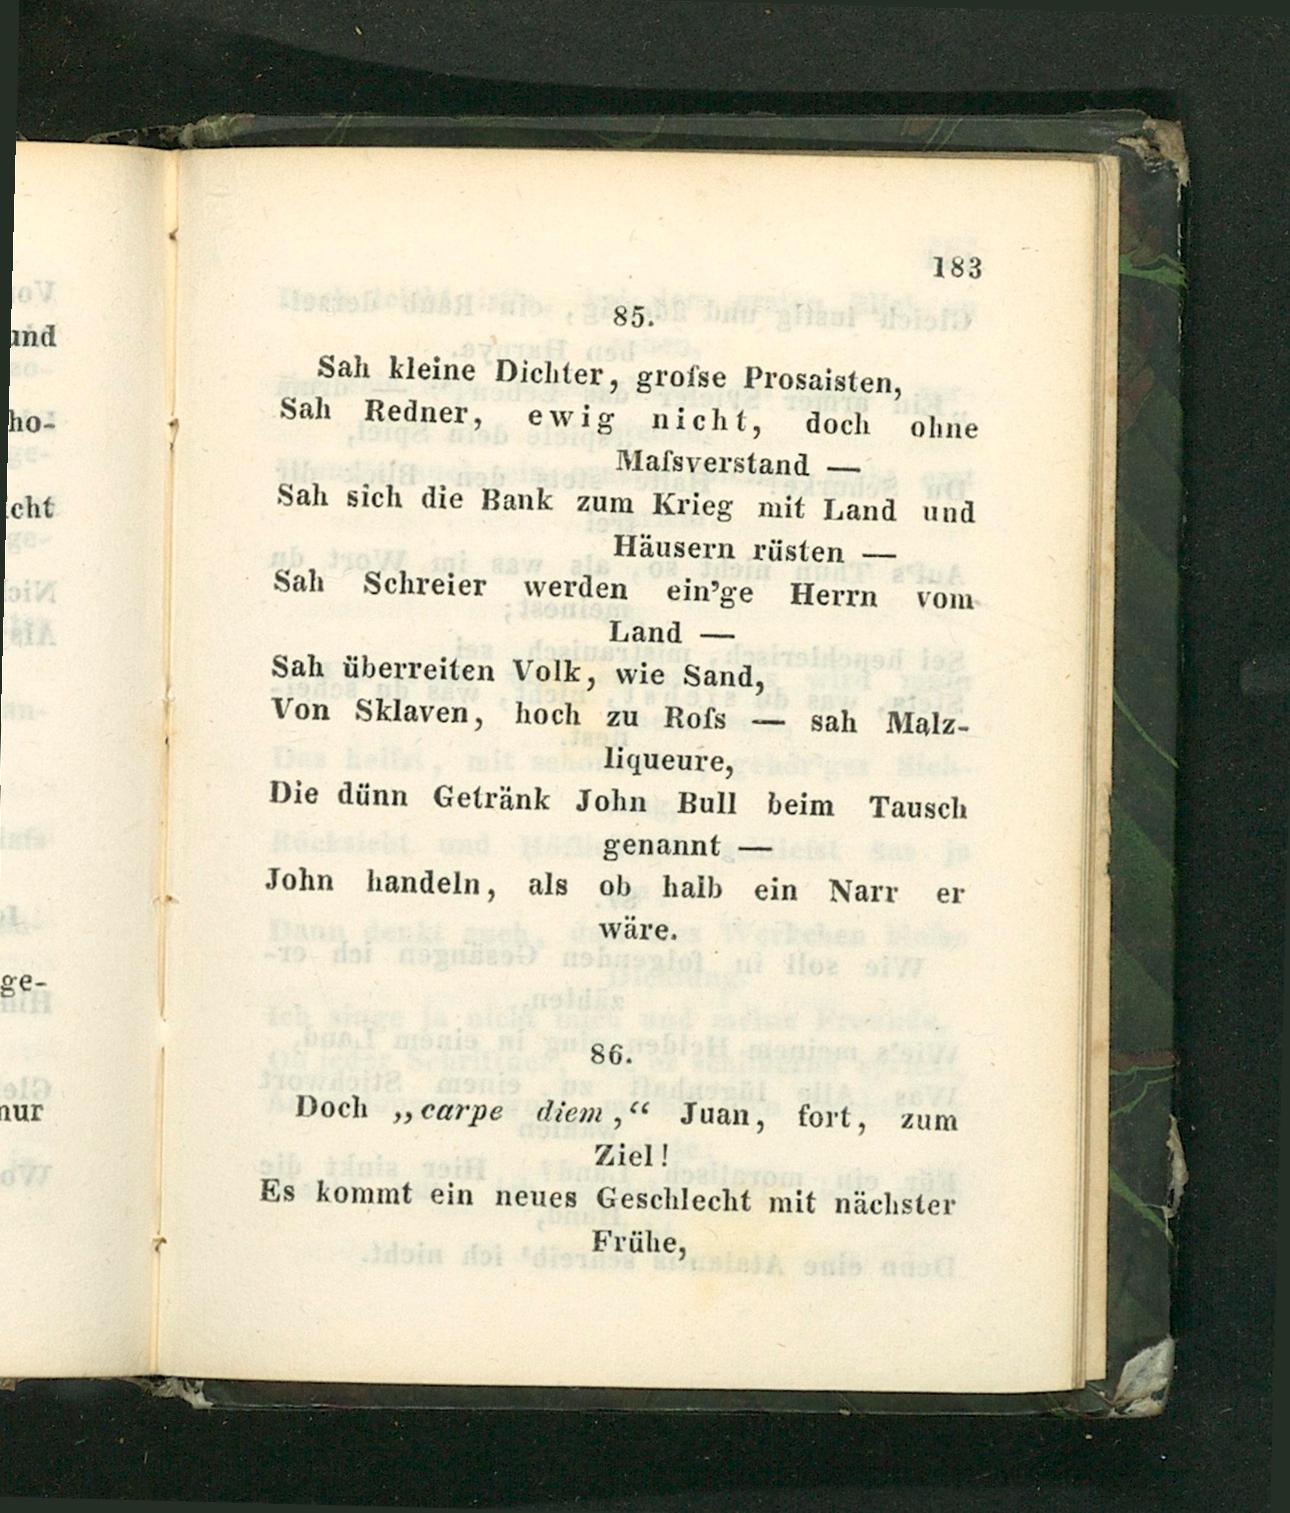 183
85.
Sah kleine Dichter, groſse Prosaisten,
Sah Redner, ewig nicht, doch ohne
Maſsverstand —
Sah sich die Bank zum Krieg mit Land und
Häusern rüsten —
Sah Schreier werden ein’ge Herrn vom
Land —
Sah überreiten Volk, wie Sand,
Von Sklaven, hoch zu Roſs — sah Malz-
liqueure,
Die dünn Getränk John Bull beim Tausch
genannt —
John handeln, als ob halb ein Narr er
wäre.
86.
Doch „carpe diem,“ Juan, fort, zum
Ziel!
Es kommt ein neues Geschlecht mit nächster
Frühe,